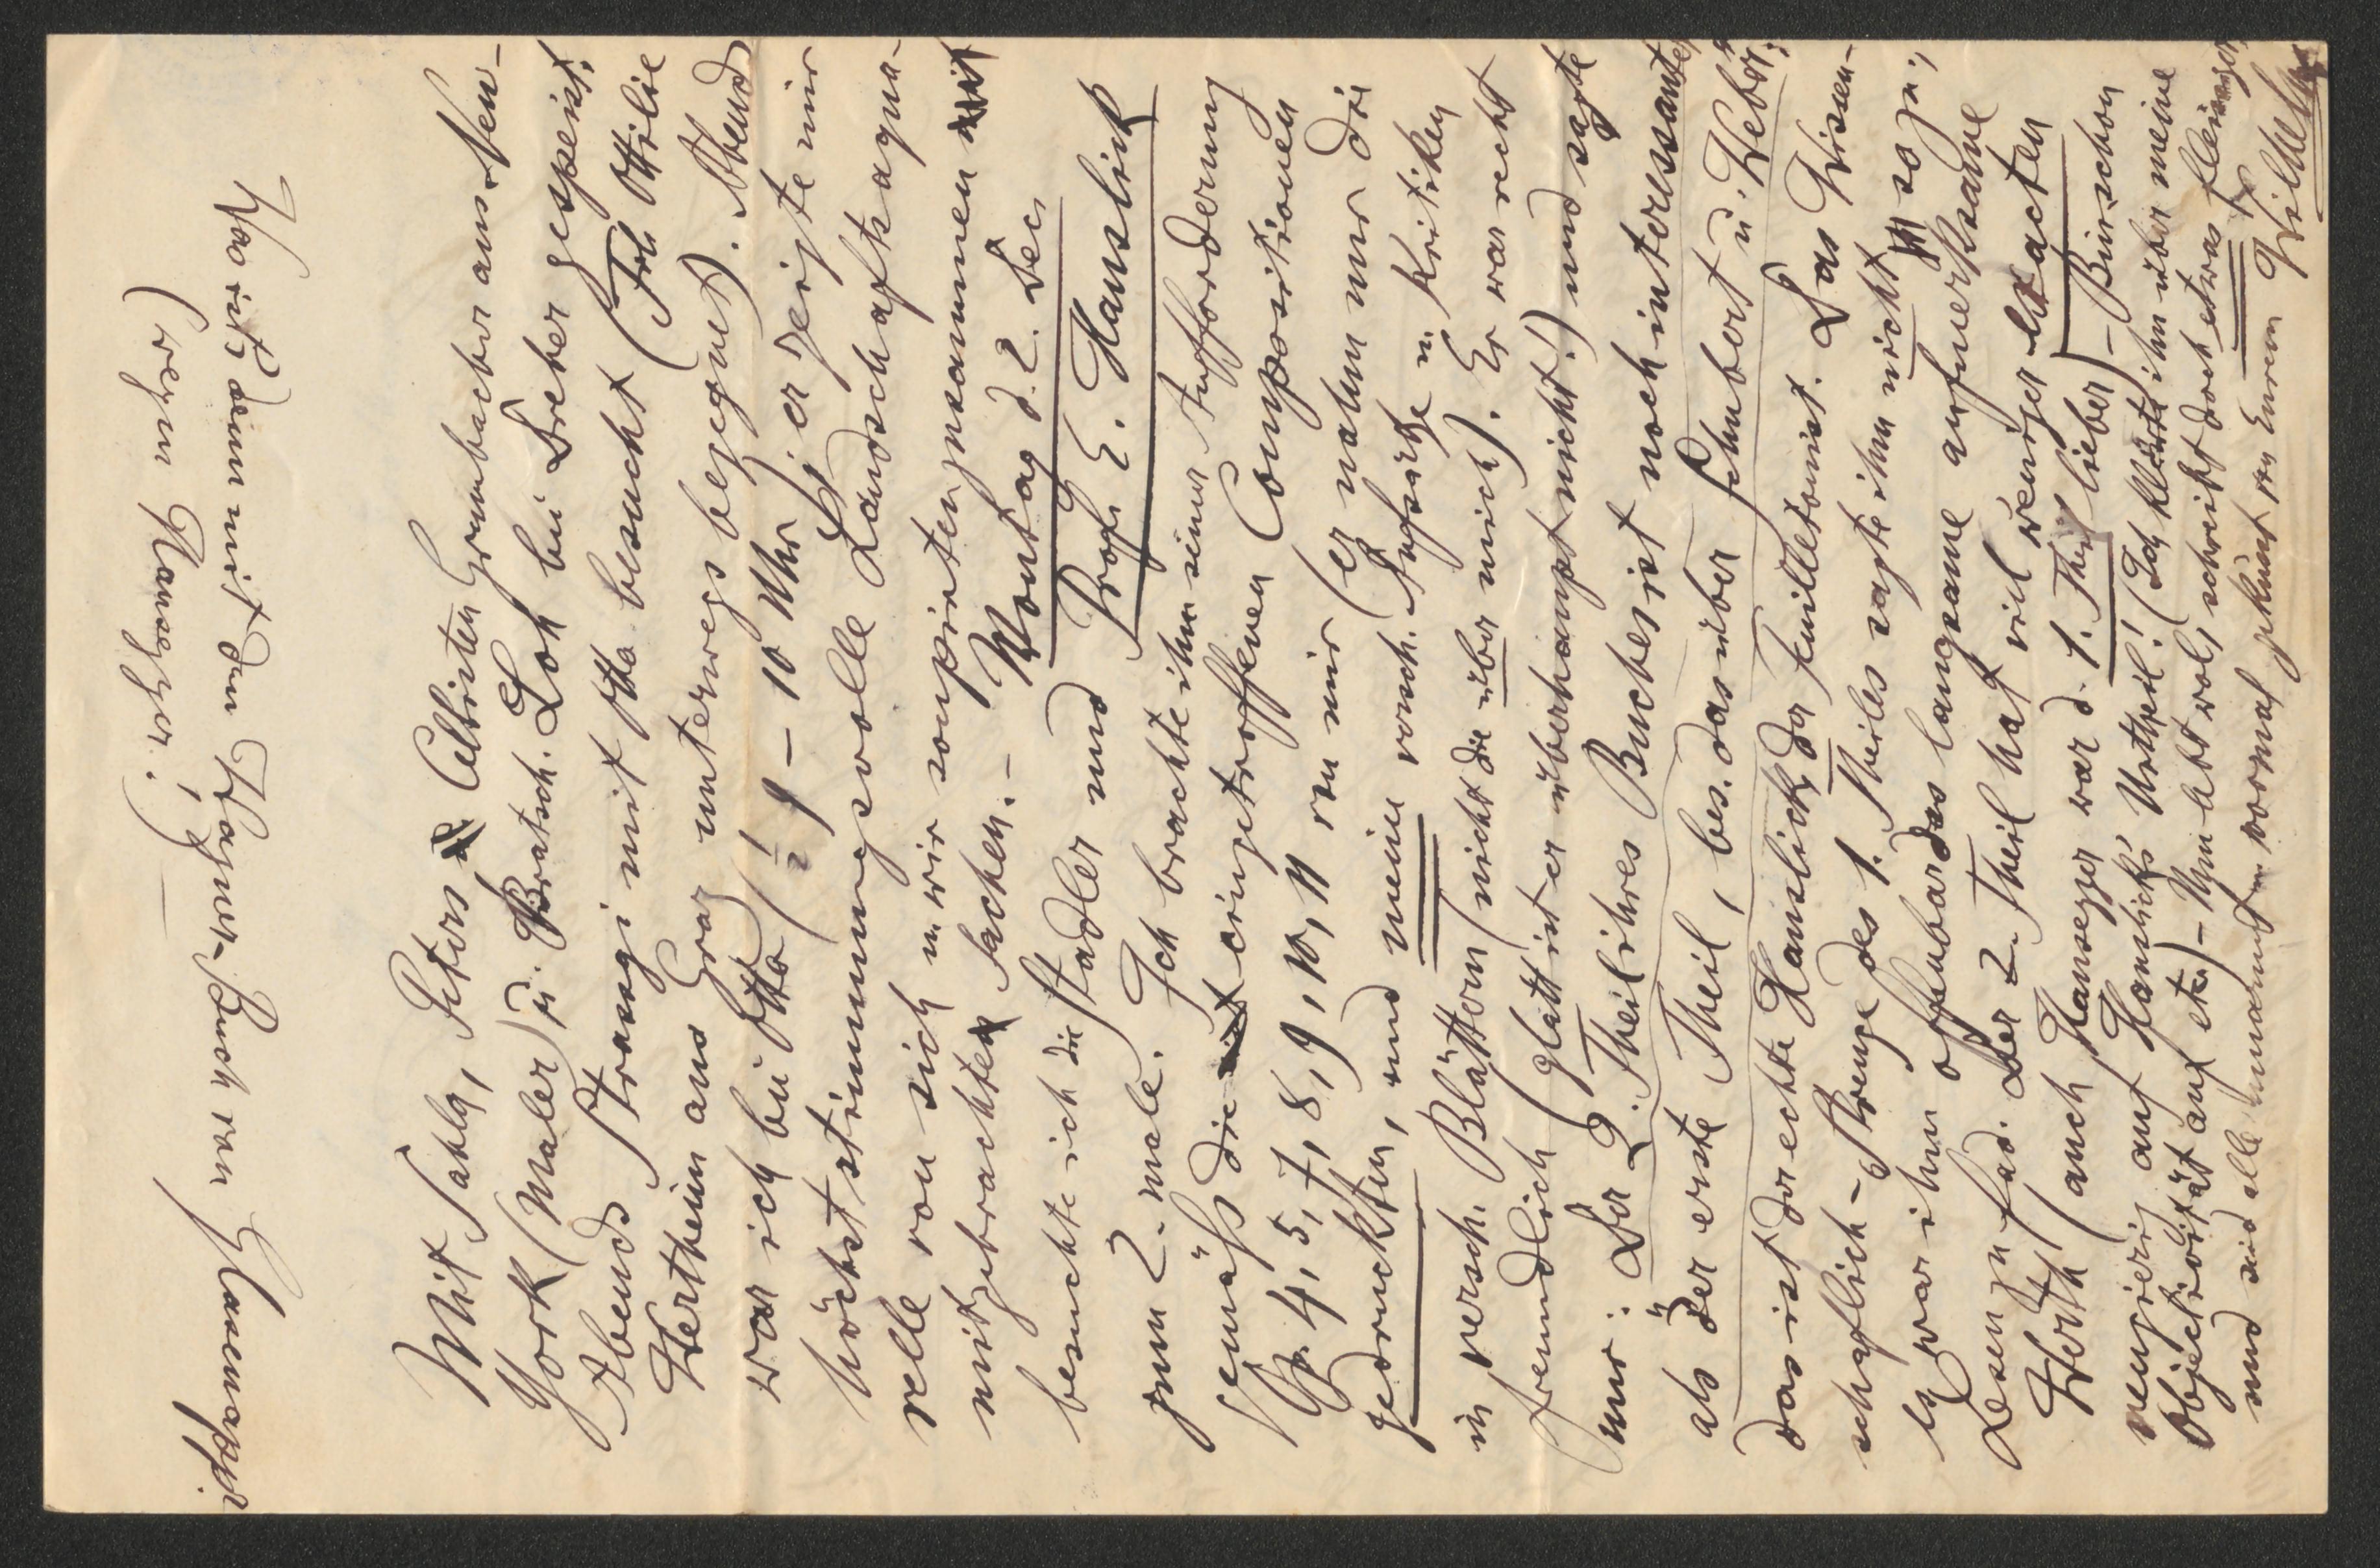 Mit Sahla, Peters, Cellisten Grumbacher aus New-
York (Maler) u. Bratsch. Loh bei Dreher gespeist.
Abends Stransgi mit Otto besucht (Frl. Ottilie
Wertheim aus Graz unterwegs begegnet). Abend
war ich bei Otto (½ 9 – 10 Uhr); er zeigte mir
höchst stimmungsvolle Landschaftsaqua-
relle von sich u. wir soupirten zusammen mit
mitgebrachten Sachen. – Montag d. 2. Dec.
besuchte ich die Stadler und Prof. E. Hanslick
zum 2. male. Ich brachte ihm seiner Aufforderung
gemäß die eingetroffenen Compositionen
Op. 4, 5, 7, 8, 9, 10, 11 von mir (er nahm nur die
gedruckten, und meine versch. Aufsätze u. Kritiken
in versch. Blättern (nicht die über mich). Er war recht
freundlich (glatt ist er überhaupt nicht!) und sagte
mir: „Der 2. Theil ihres Buches ist noch interessanter
als der erste Theil, bes. das über Schubert u. Weber“;
das ist der echte Hanslick, der Feuilletonist. Das Wissen-
schaftlich-Strenge des 1. Theiles sagte ihm nicht so zu;
es war ihm offenbar das langsame aufmerksame
Lesen zu fad. Der 2. Theil hat viel weniger exacten
Werth (auch Hausegger war d. 1. Theil lieber) – Bin schon
neugierig auf Hanslick's Urtheil! (Ich klärte ihn über meine
Objectivität auf etc.) – Nun lebt wol, schreibt doch etwas fleißiger
und seid alle umarmt u. noormal geküsst von Eurem Wilhelm
Was ist's denn mit dem Wagner-Buch von Glasenapp?
(wegen Hausegger!)